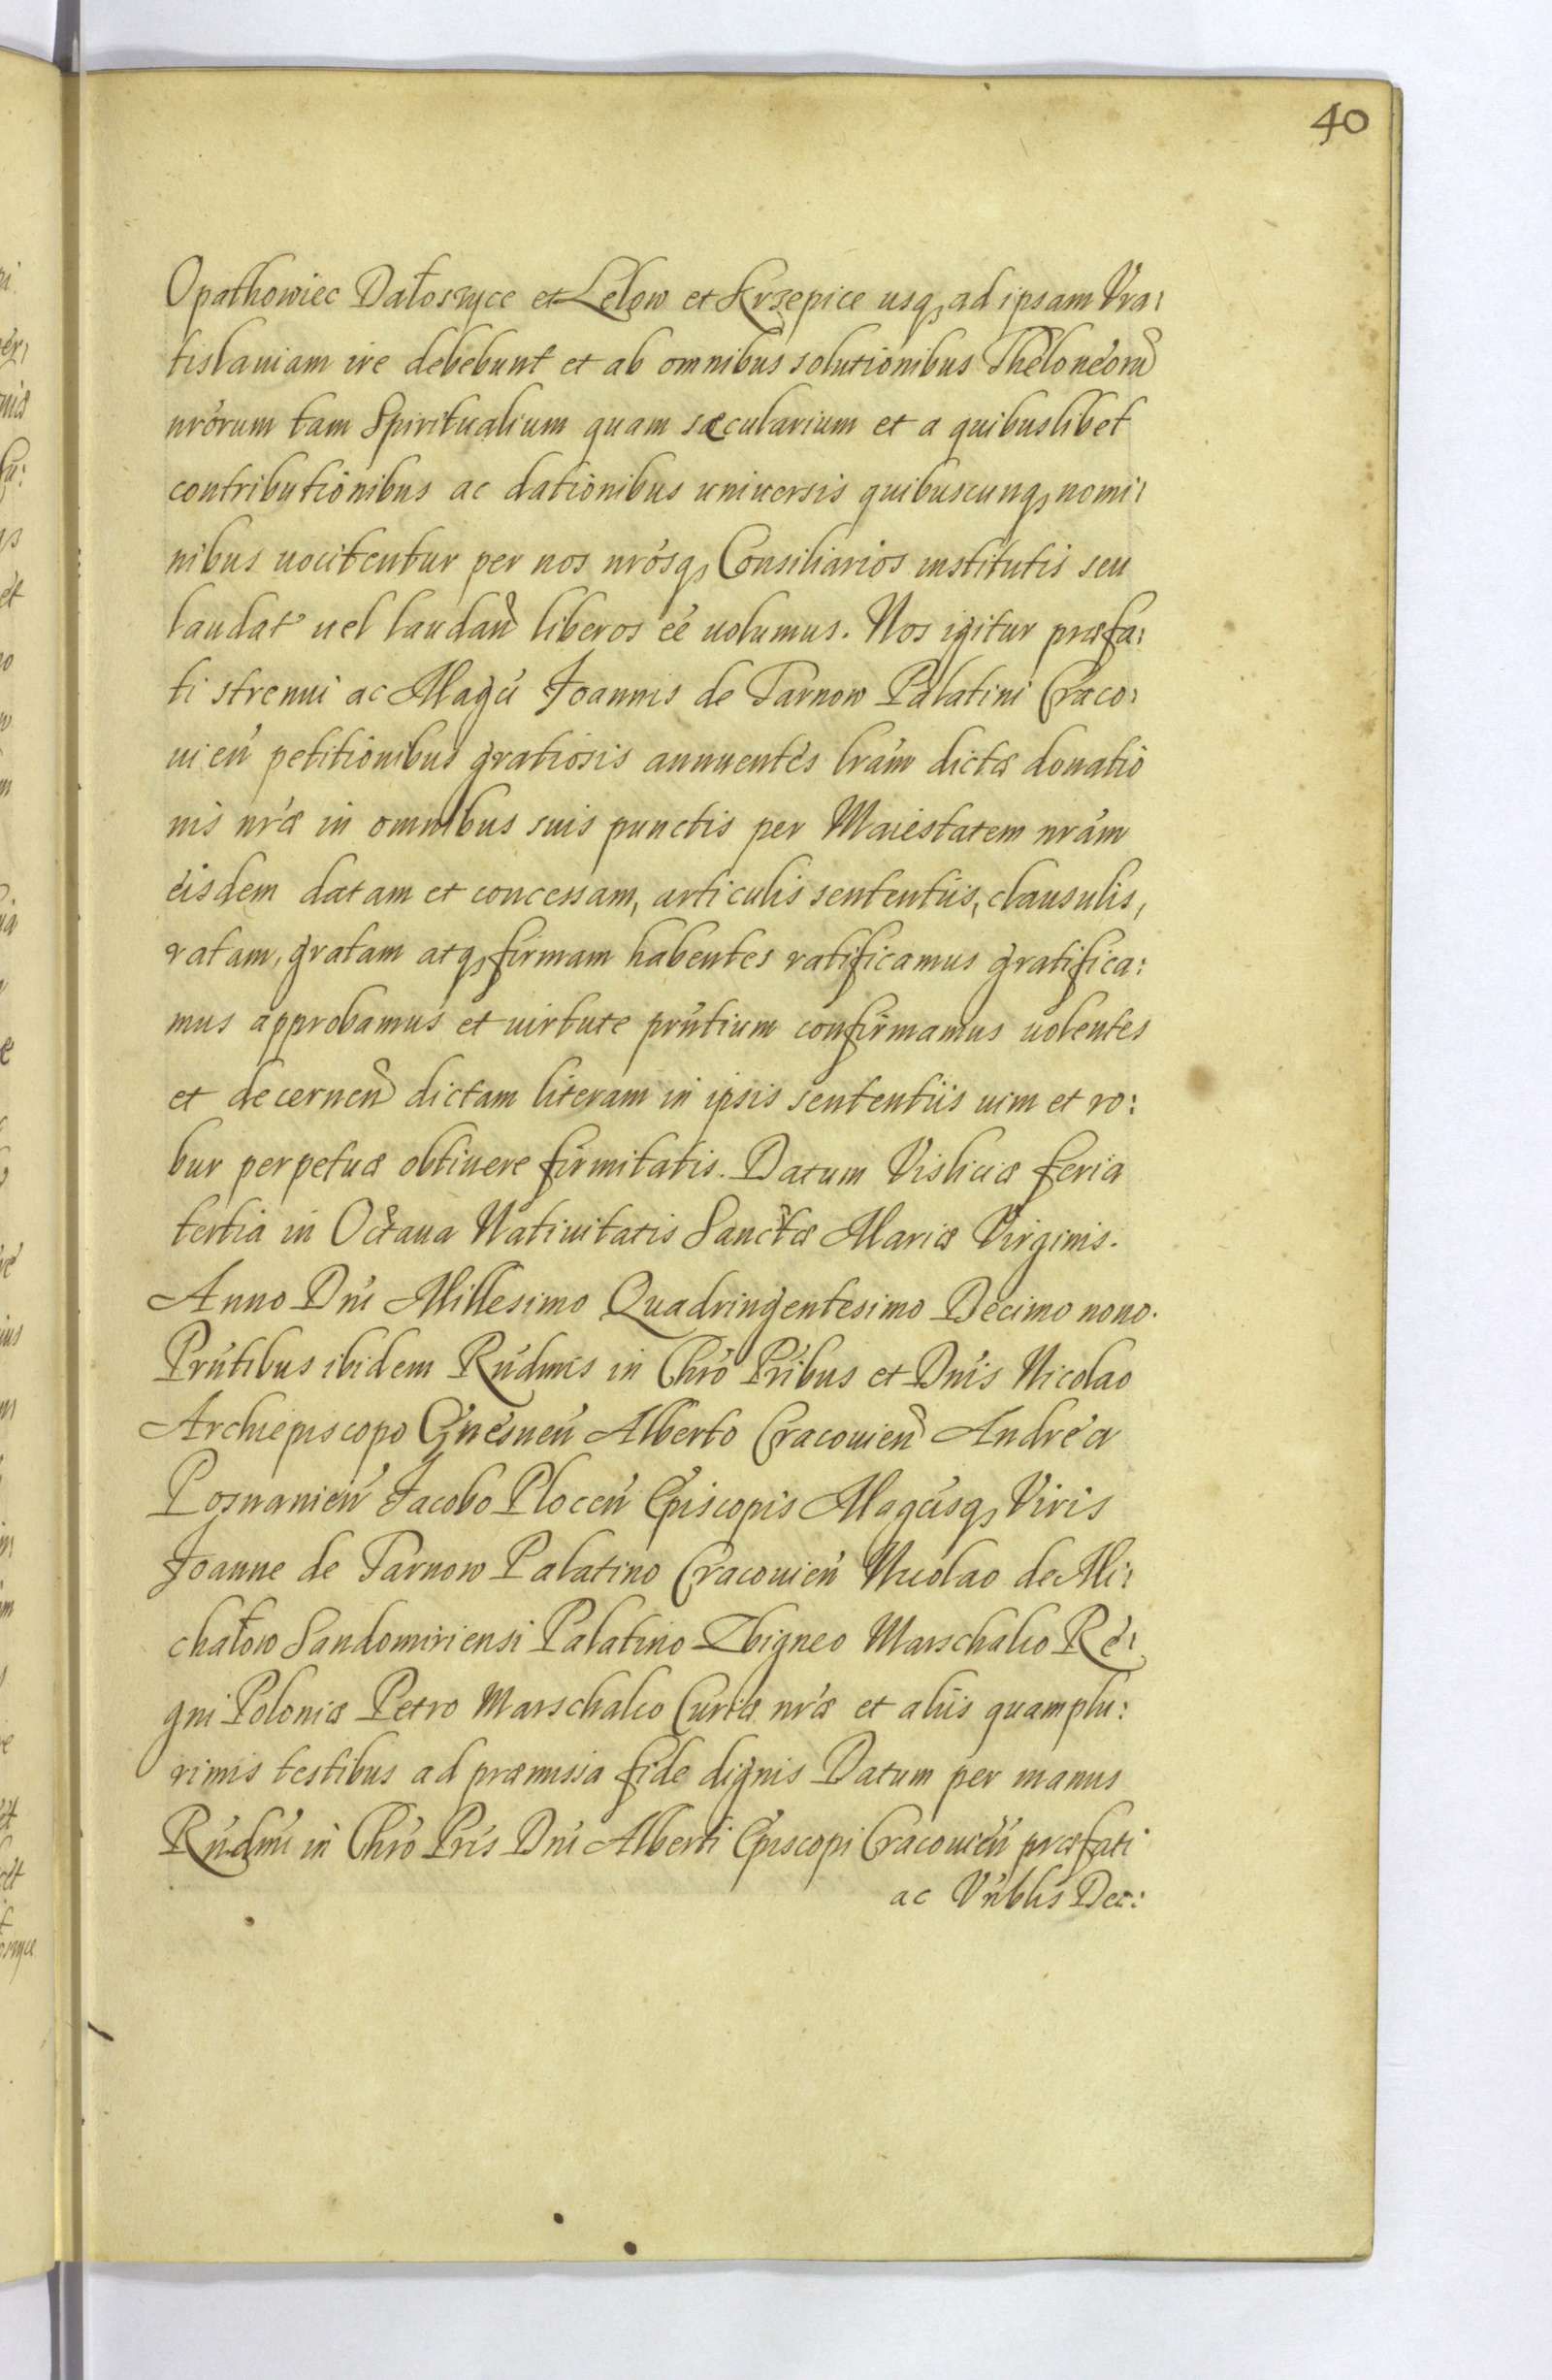 40
Opathowiec Datoszyce et Lelow et Krzepice usq, ad ipsam Vra:
tislauiam ire debebunt et ab omnibus solutionibus Theloneorũ
nrórum tam Spiritualium quam sæcularium et a quibuslibet
contributionibus ac dationibus uniuersis quibuscunq, nomi:
nibus uocitentur per nos nrósq, Consiliarios institutis seu
laudat uel laudañ liberos éé uolumus. Nos igitur præfa:
ti strenui ac Magci Joannis de Tarnow Palatini Craco:
uień petitionibus gratiosis annuentes lrám dictæ donatio
nis nræ in omnibus suis punctis per Maiestatem nrám
eisdem datam et concessam, articulis sententiis, clausulis,
ratam, gratam atq, firmam habentes ratificamus gratifica:
mus approbamus et uirtute prńtium confirmamus uolentes
et decerneñ dictam literam in ipsis sententiis uim et ro:
bur perpetuæ obtinere firmitatis. Datum Visliciæ feria
tertia in Octaua Natiuitatis Sanctæ Mariæ Virginis.
Anno Dńi Millesimo Quadringentesimo Decimo nono.
Prńtibus ibidem Rńdmis in Chró Pribus et Dńis Nicolao
Archiepiscopo Gnesneń Alberto Cracouieñ Andrea
Posnanień Jacobo Ploceń Episcopis Magcisq, Viris
Joanne de Tarnow Palatino Cracouień Nicolao de Mi:
chałow Sandomiriensi Palatino Zbigneo Marschalco Re:
gni Poloniæ Petro Marschalco Curiæ nræ et aliis quamplu:
rimis testibus ad præmissa fide dignis Datum per manus
Rńdmi in Chró Pris Dńi Alberti Episcopi Cracouień præfati
ac Vńblis Dec: